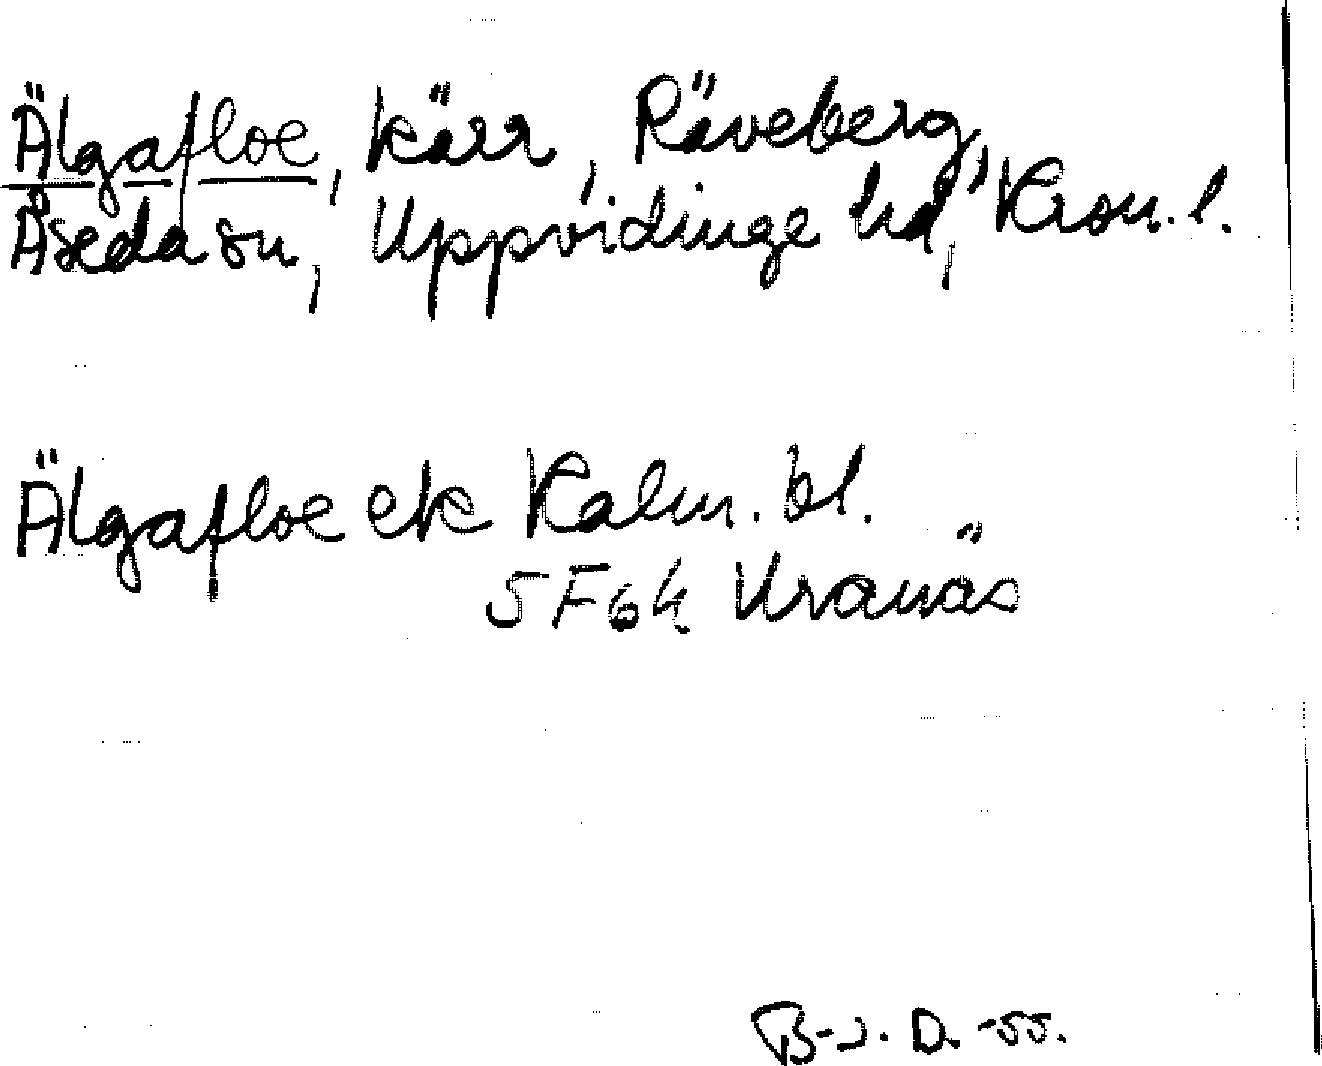 Älgafloe, kärr, Räveberg,
Åseda sn, Uppvidinge hd, Kron. l.
Älgafloe ek Kalm. bl.
5F6h Kranäs
B-J. D. -55.